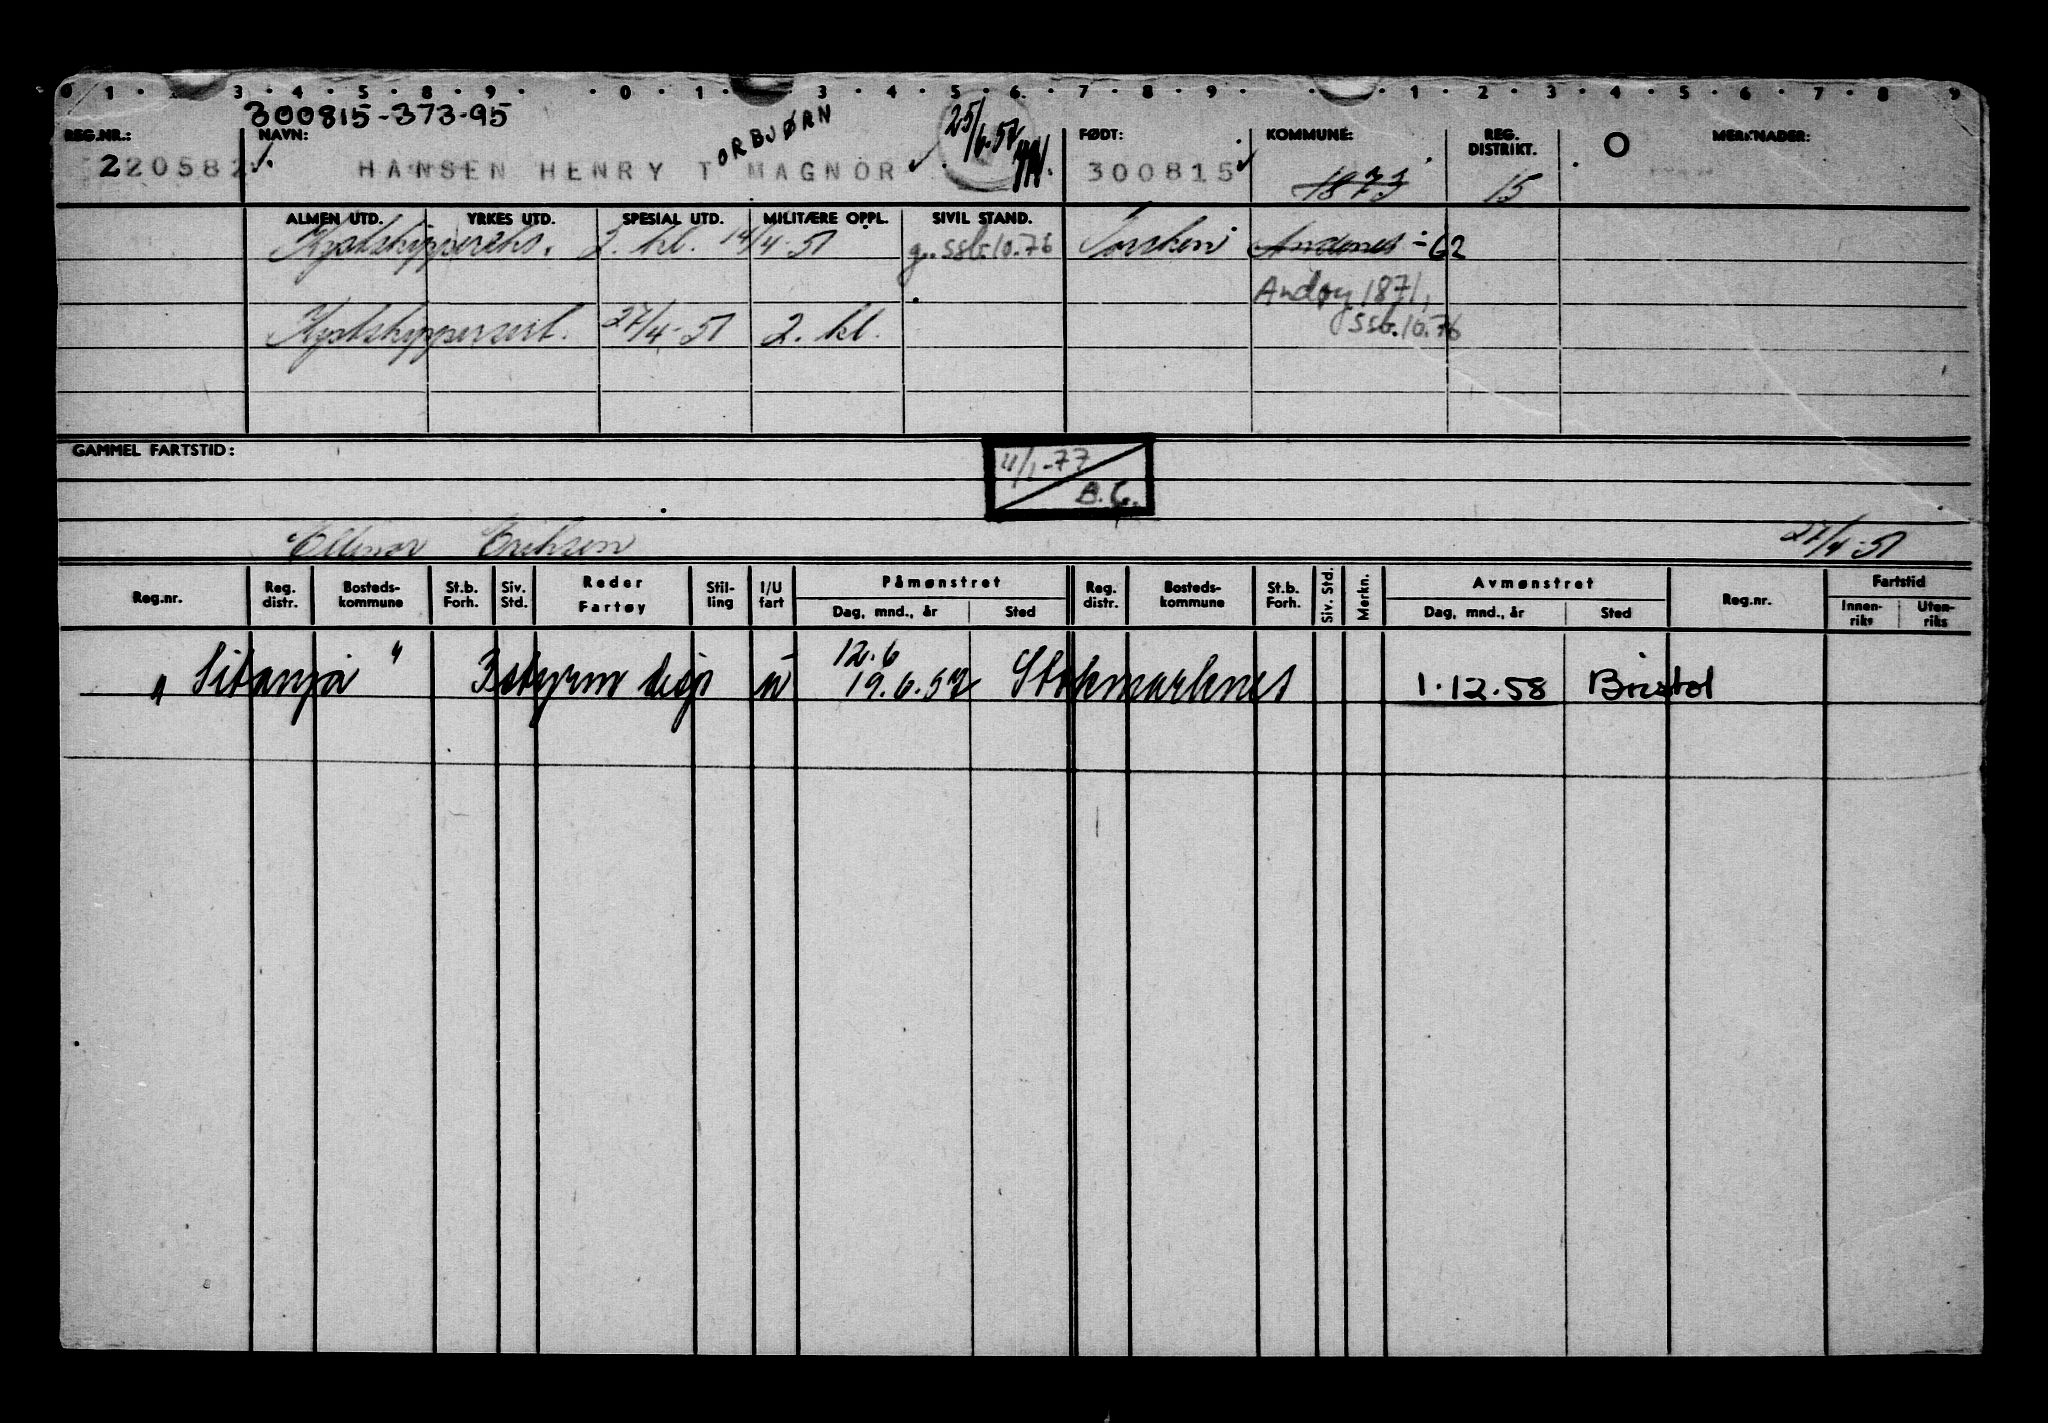 0 1 . 2 . 3 . 4 . 5 . 8 . 9 . . 0 . 1 . . 3 . 4 . 5 . 6 . 7 . 8 . 9 . . 1 . 2 . 3 . 4 . 5 . 6 . 7 . 8 9
300815-373-95
REG.NR.: NAVN: ORBJØRN 25/6.57 FØDT: KOMMUNE: REG. DISTRIKT. O MERKNADER:
220582 HANSEN HENRY T MAGNOR 300815 1873 15
ALMEN UTD. YRKES UTD. SPESIAL UTD. MILITÆRE OPPL. SIVIL STAND.
Kystskippereks. 2. kl. 14/4-51 g. ssb.10.76 Torsken Andenes -62
Andøy 1871,
ssb.10.76
Kystskippersert. 27/4-51 2. kl.
GAMMEL FARTSTID:
11/1-77
B.G.
Ellinor Eriksen 27/4-51
Reg.nr. Reg. distr. Bosteds-kommune St.b. Forh. Siv. Std. Reder Fartøy Stil-ling I/U fart Påmønstret Reg. distr. Bosteds-kommune St.b. Forh. Siv. Std. Merkn. Avmønstret Reg.nr. Fartstid
Dag, mnd., år Sted Dag, mnd., år Sted Innen-riks Uten-riks
12.6
"Sitanja" 3 styrm disp u 19.6.57 Stokmarknes 1.12.58 Bristol